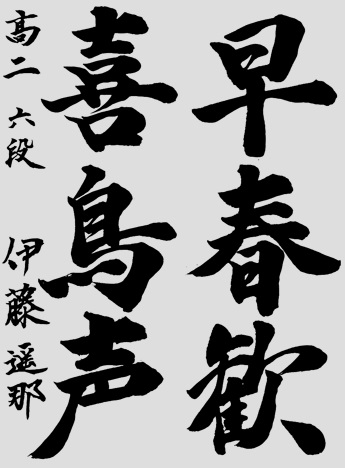 早春歓
喜鳥声
高二 六段 伊藤遥那